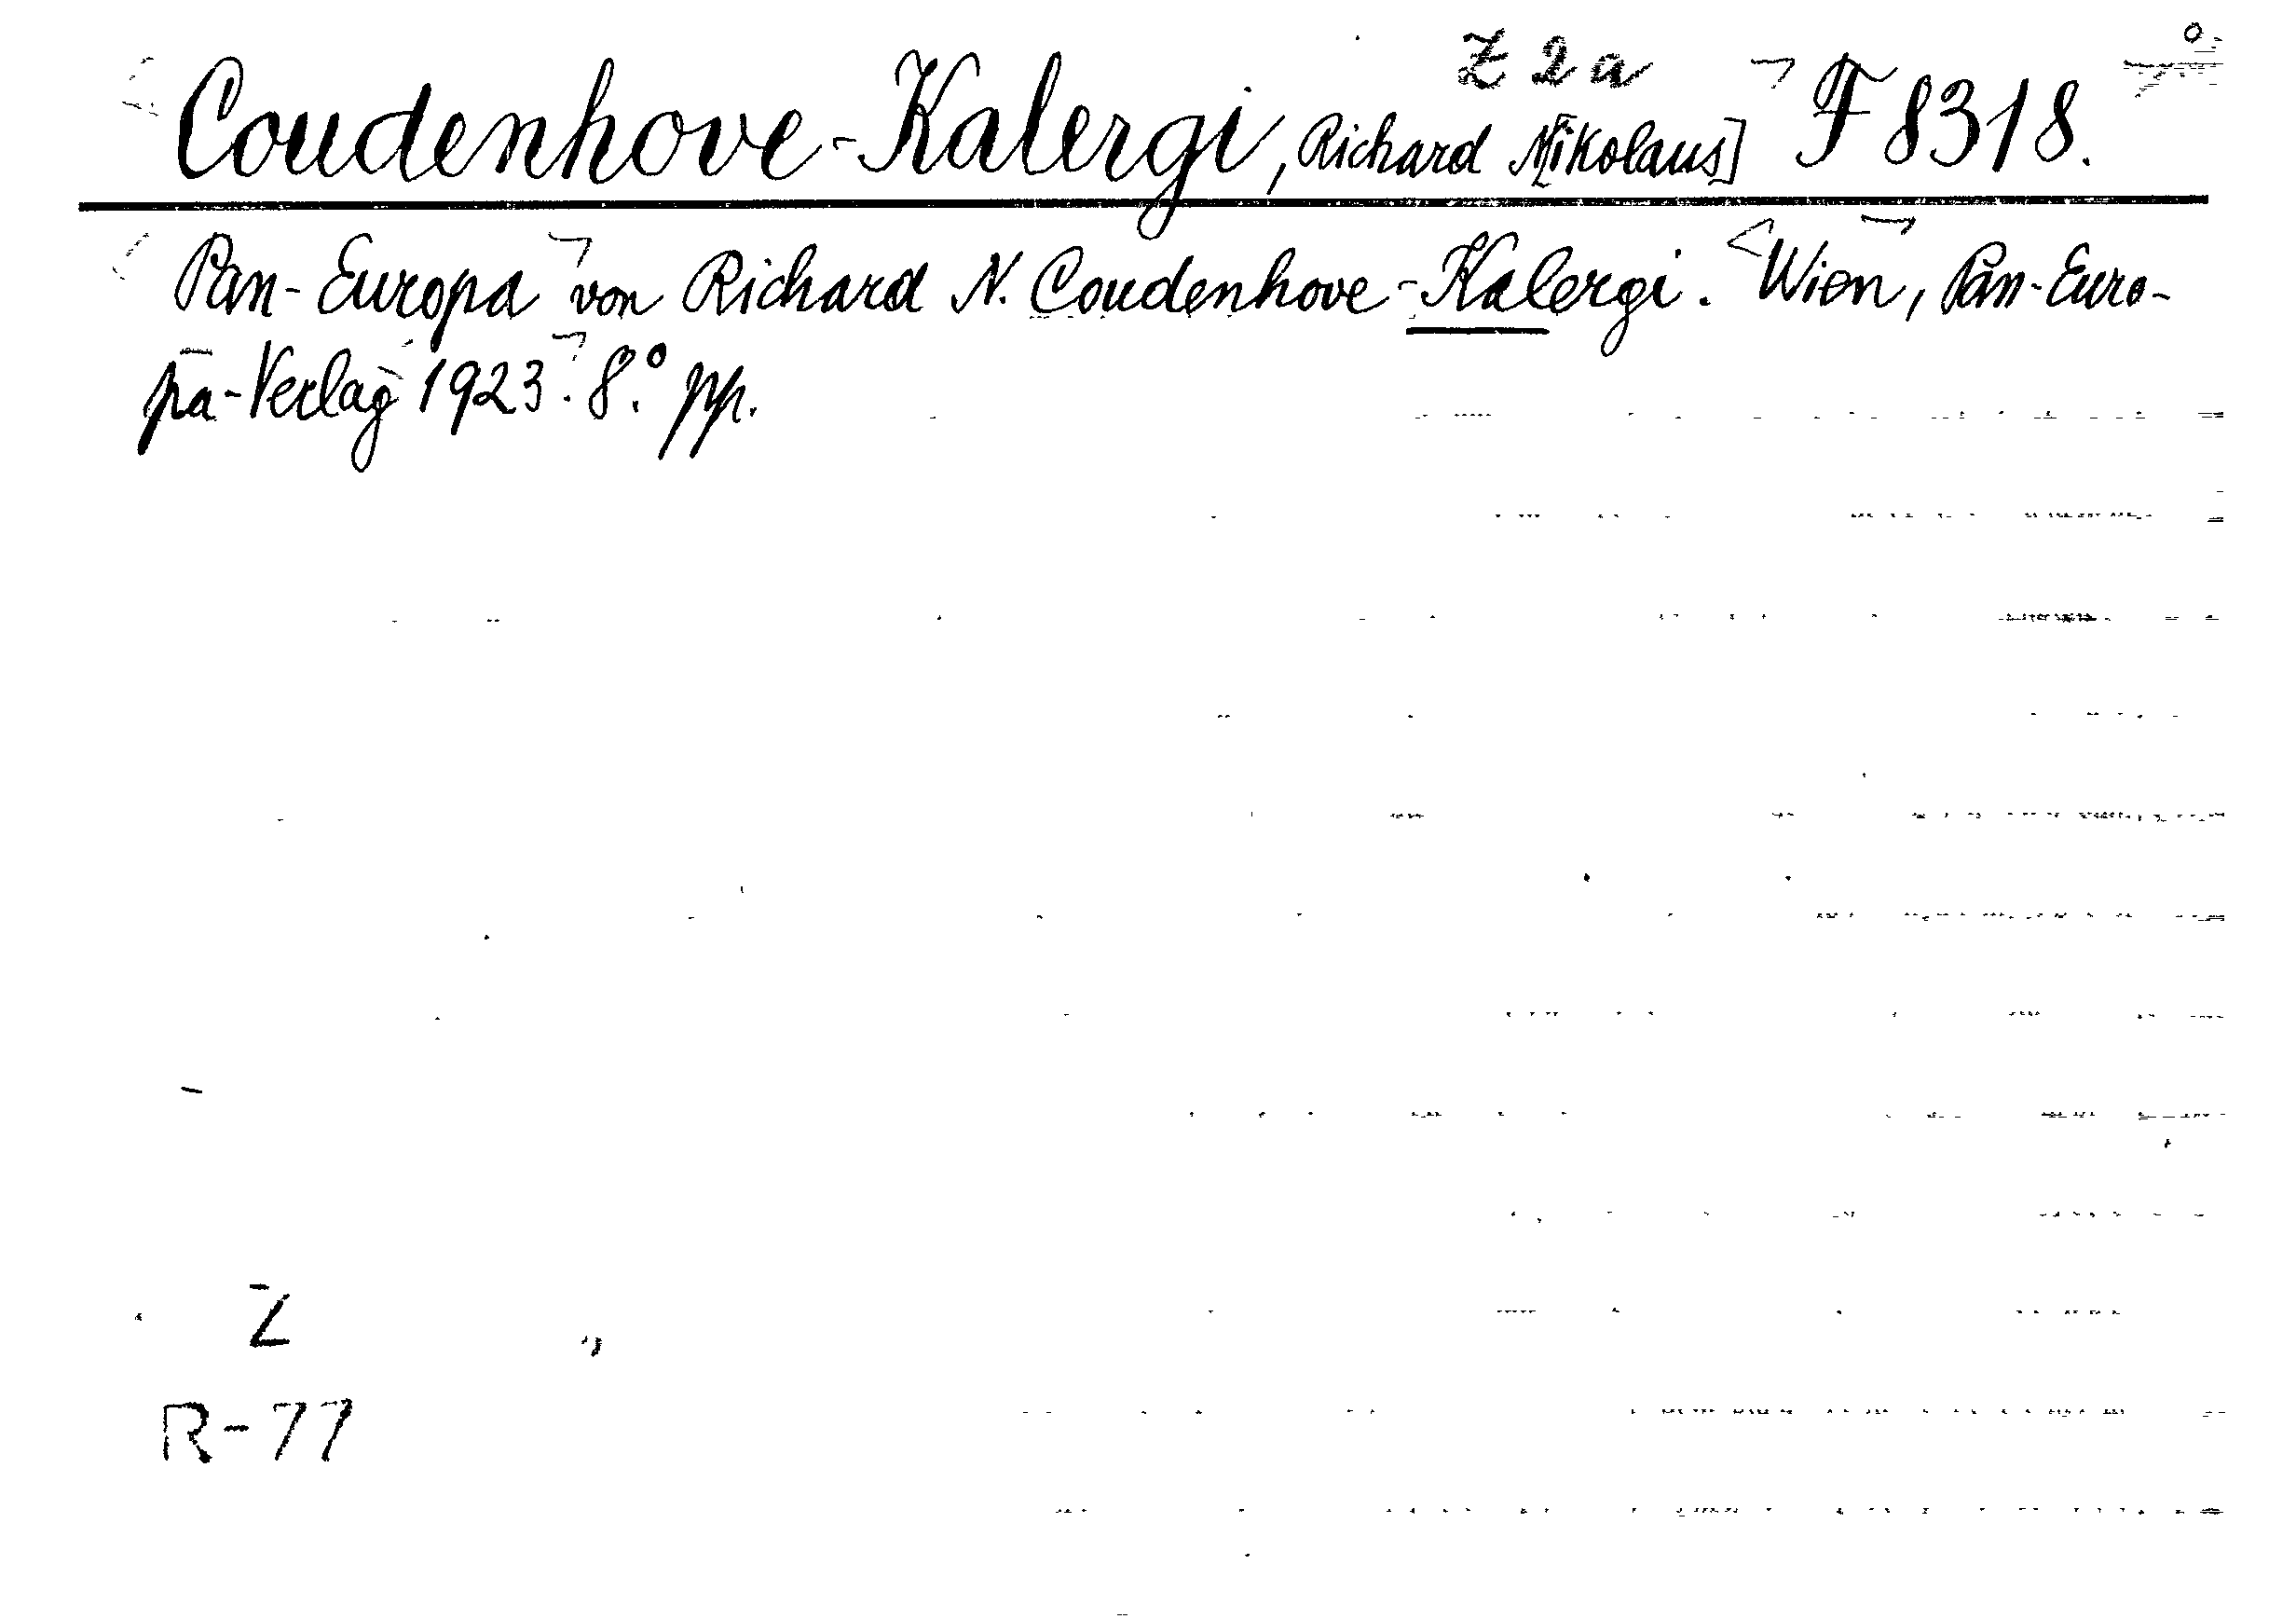 Z 2 a
Coudenhove-Kalergi, Richard N[ikolaus] F 8318.
Pan-Europa von Richard N. Coudenhove-Kalergi. Wien, Pan-Euro-
pa-Verlag 1923. 8.° pp.
Z
R-77